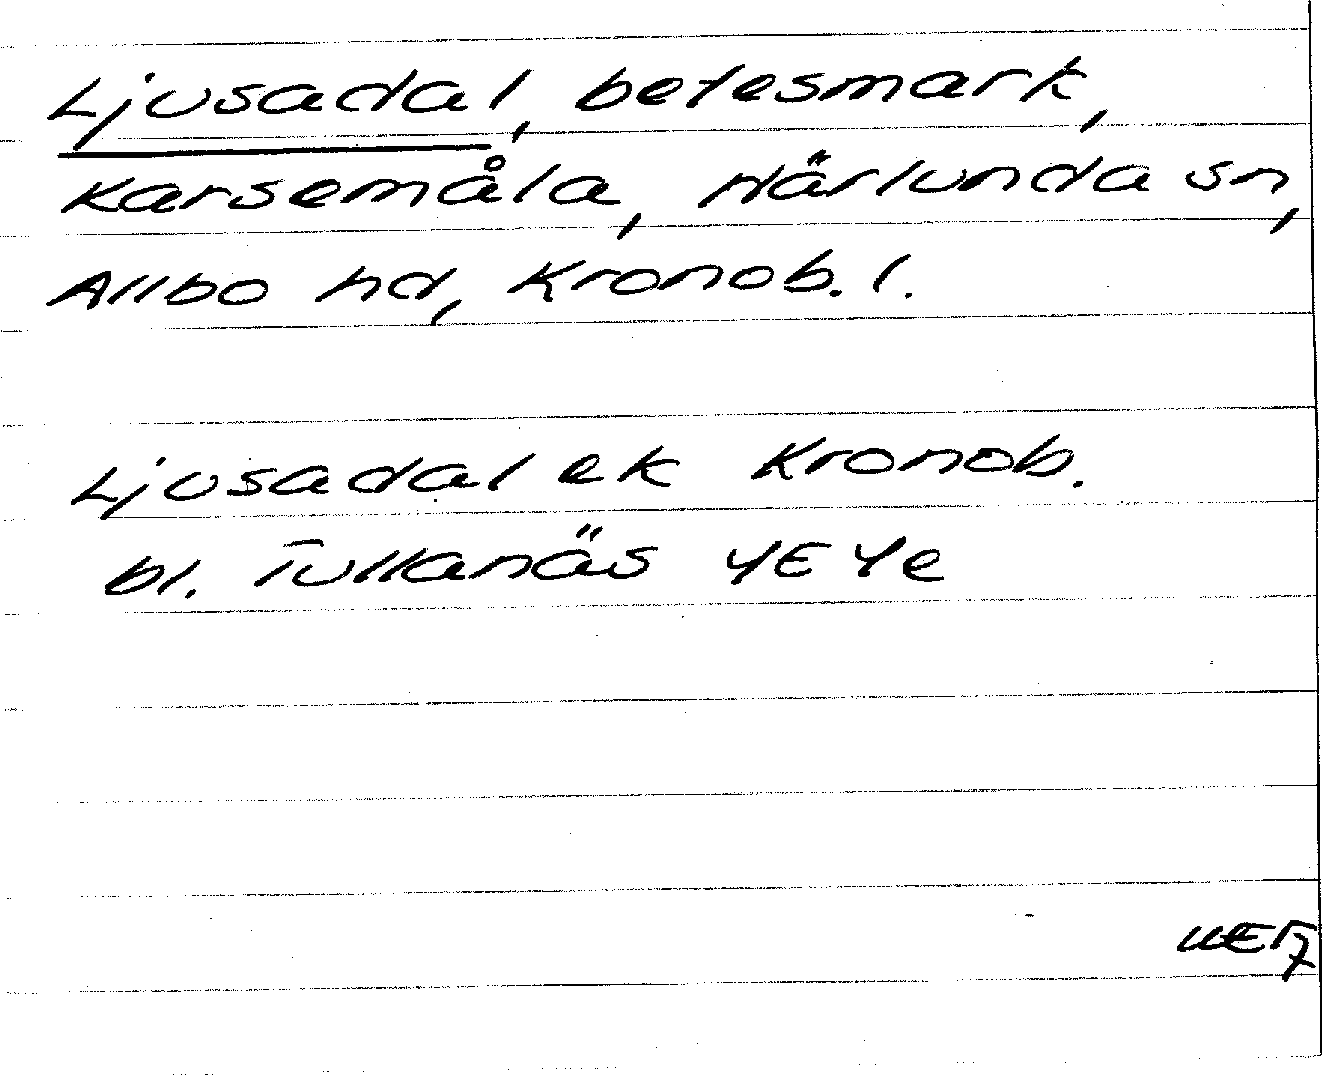 Ljusadal, betesmark,
Karsemåla, Härlunda sn,
Allbo hd, Kronob. l.
Ljusadal ek Kronob.
bl. Tullanäs 4E 4e